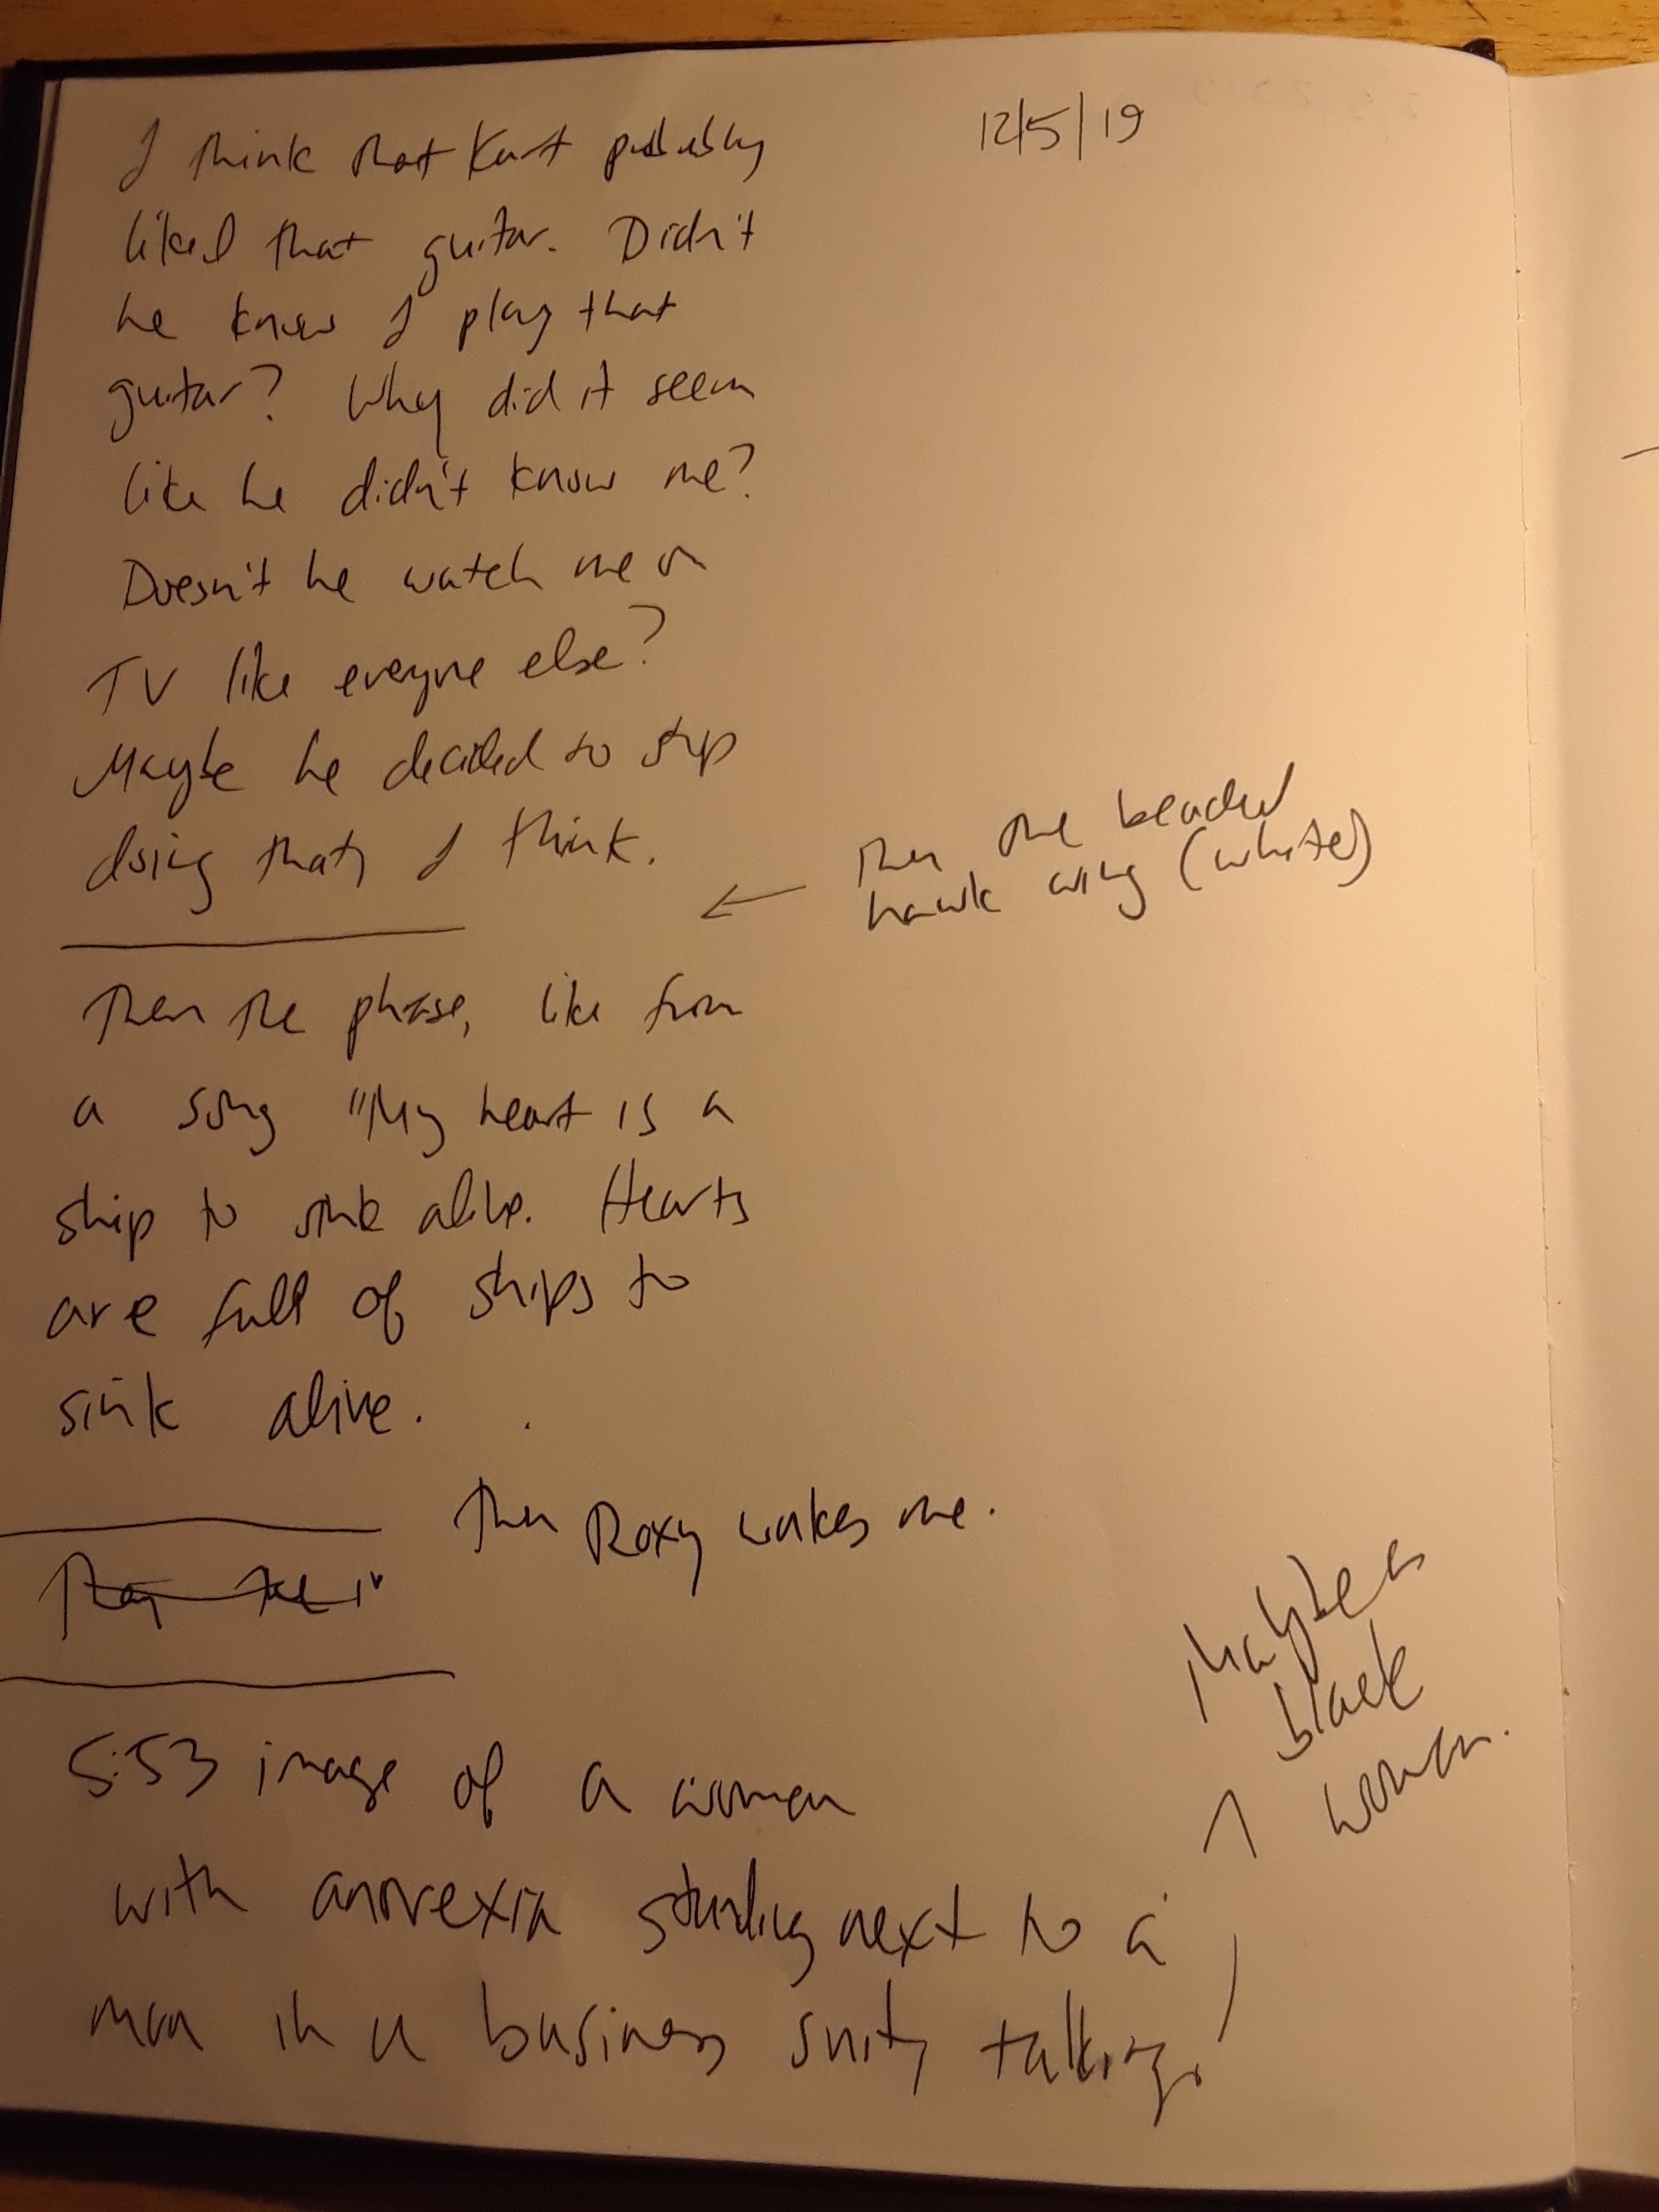 12/5/19
I think that Kurt probably
liked that guitar. Didn't
he know I play that
guitar? Why did it seem
like he didn't know me?
Doesn't he watch me on
TV like everyone else?
Maybe he decided to stop
doing that, I think.
← Then the beaded
hawk wing (white)
Then the phrase, like from
a song "My heart is a
ship to sink alive. Hearts
are full of ships to
sink alive.
Then Roxy wakes me.
5:53 image of a woman
with anorexia standing next to a
man in a business suit, talking.
Maybe a
black
woman.